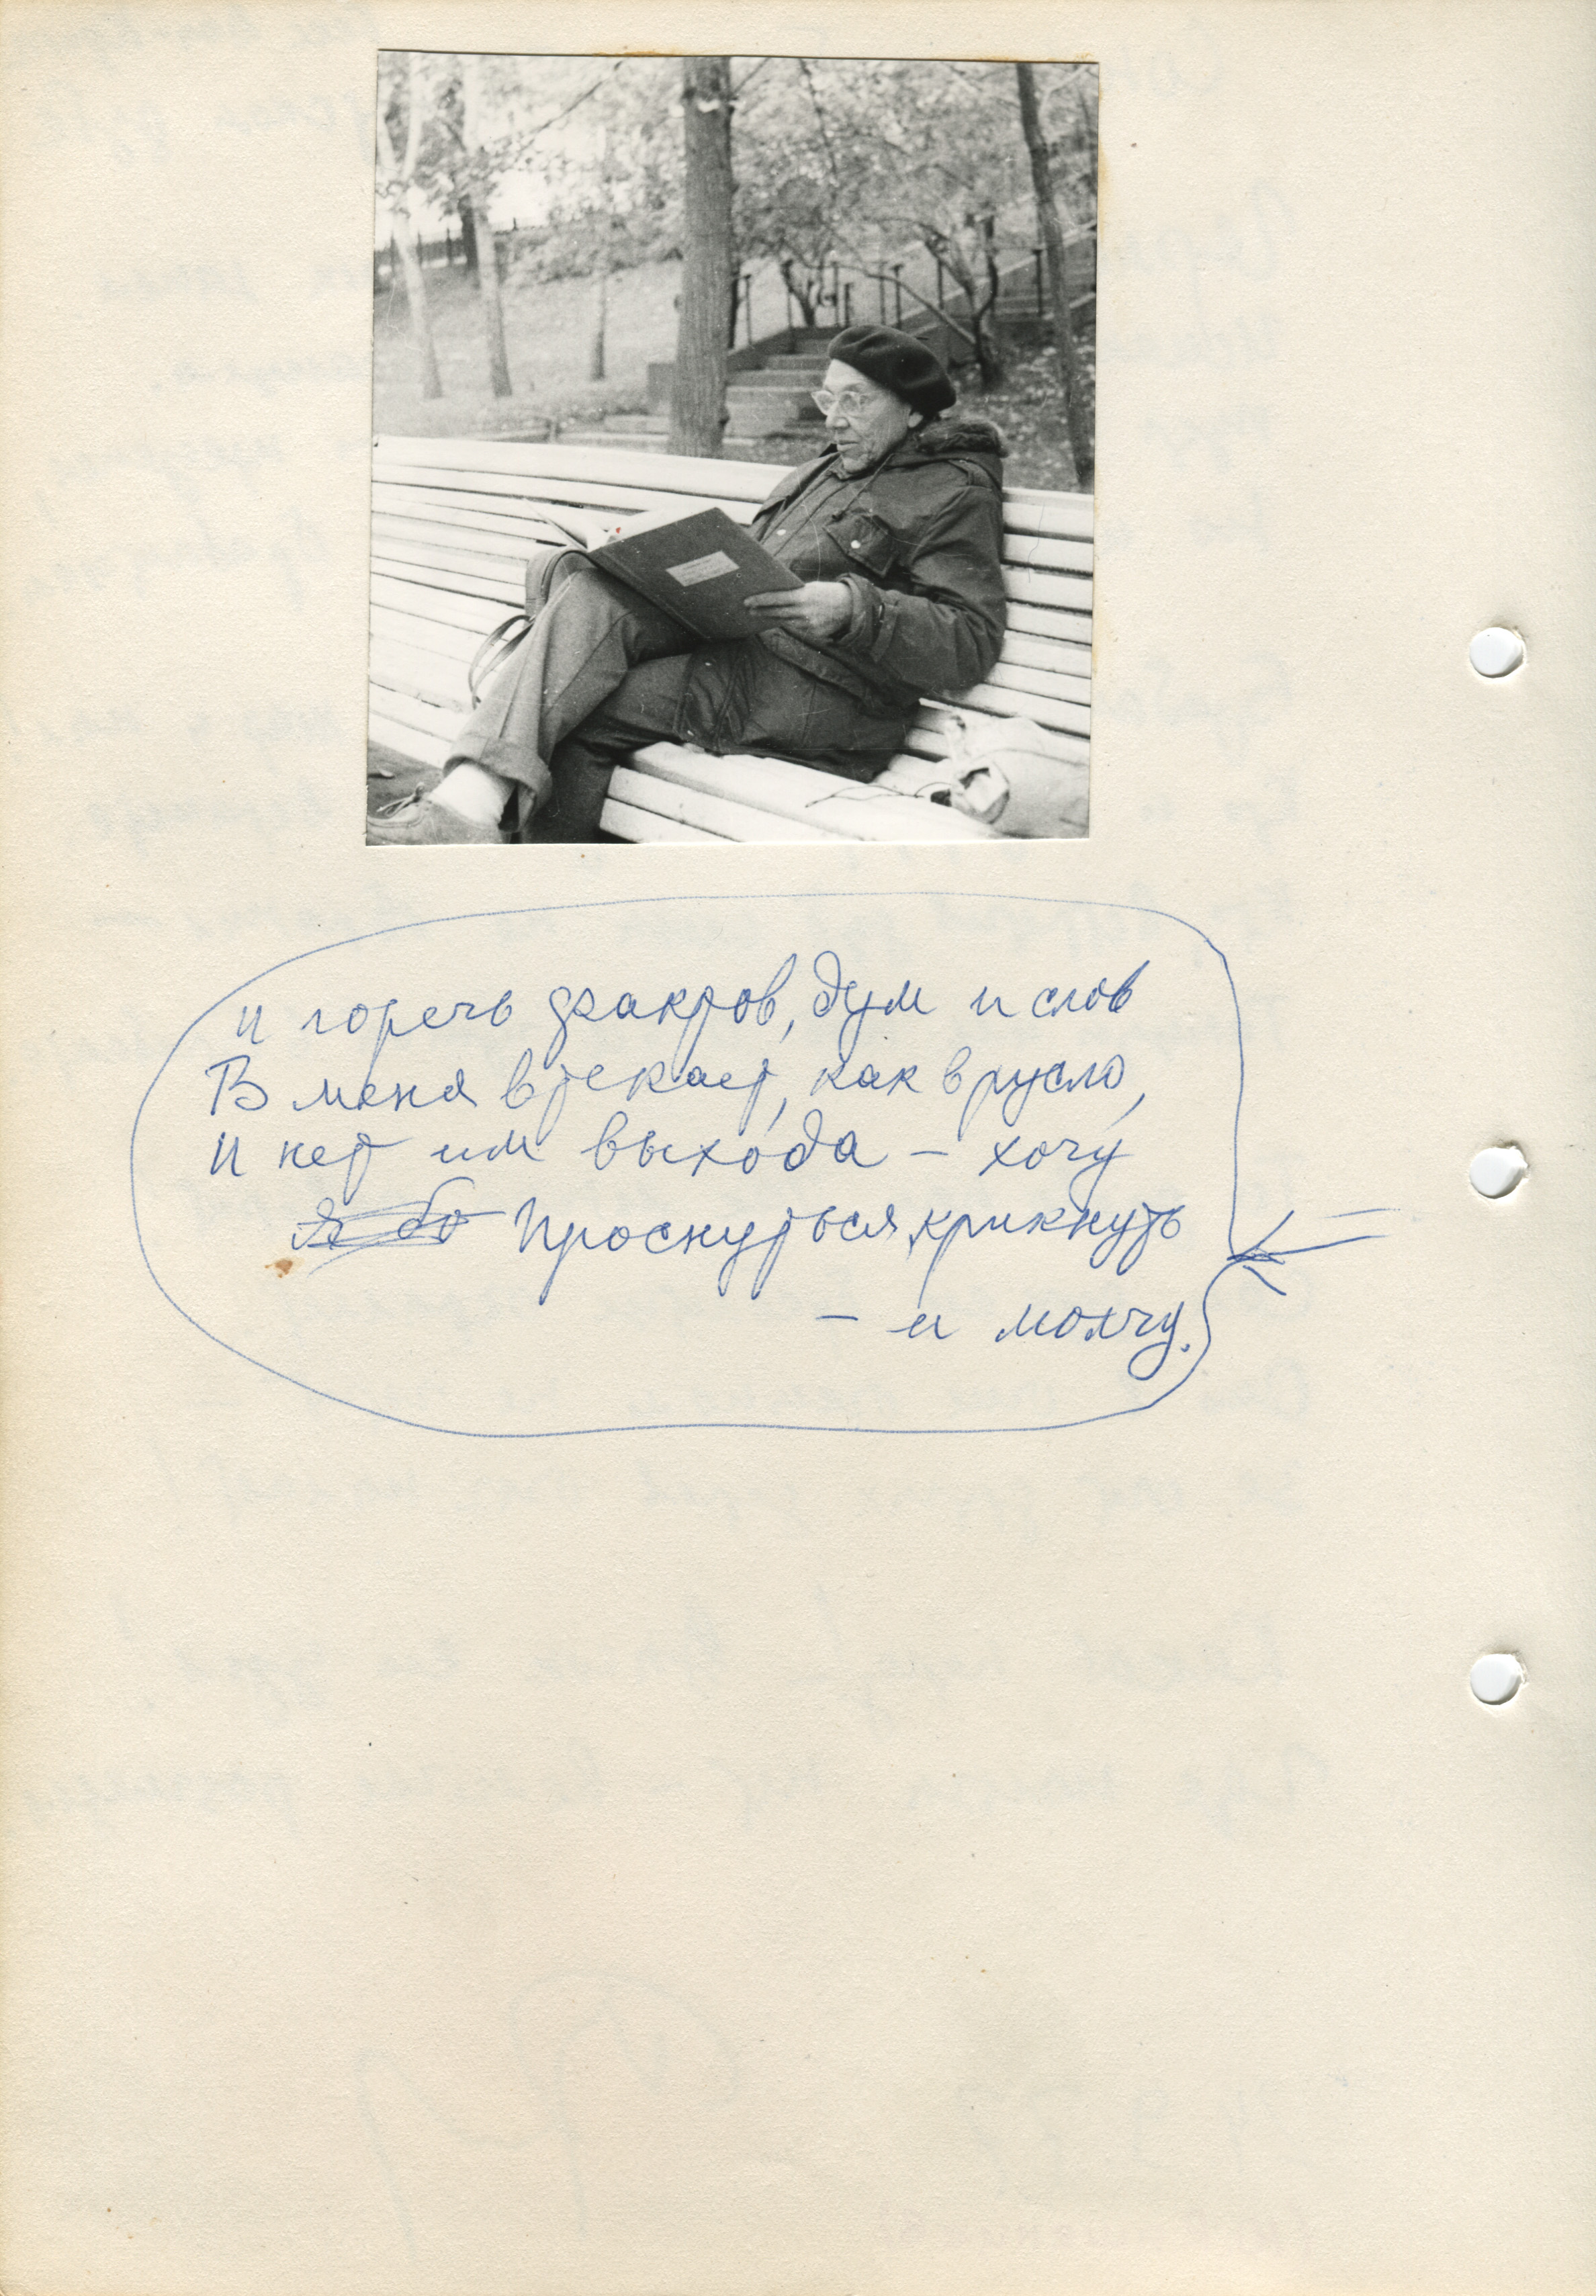 И горечь фактов, дум и слов
В меня втекает, как в русло,
И нет им выхода – хочу
Проснуться, крикнуть
– и молчу.